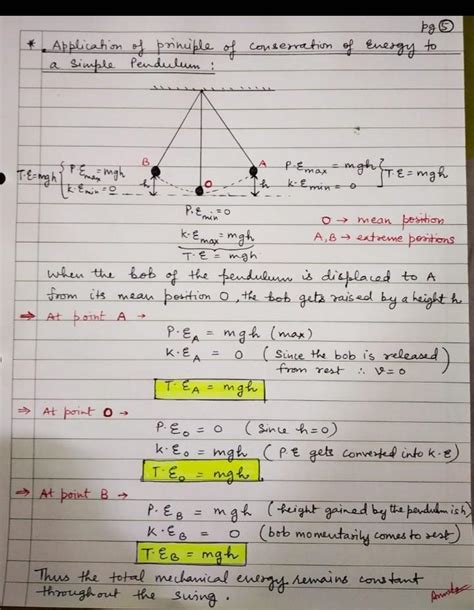 pg 5
* Application of principle of conservation of Energy to
a Simple Pendulum :
B
A
T.E=mgh { P.Emax = mgh
K.Emin = 0
h
O
h
P.Emax = mgh } T.E = mgh
K.Emin = 0
P.Emin = 0
K.Emax = mgh
T.E = mgh
O → mean position
A, B → extreme positions
When the bob of the pendulum is displaced to A
from its mean position O, the bob gets raised by a height h
⇒ At point A →
P.EA = mgh (max)
K.EA = 0 (Since the bob is released
from rest ∴ v=0)
T.EA = mgh
⇒ At point O →
P.EO = 0 (Since h=0)
K.EO = mgh (P.E gets converted into K.E)
T.EO = mgh
⇒ At point B →
P.EB = mgh (height gained by the pendulum is h)
K.EB = 0 (bob momentarily comes to rest)
T.EB = mgh
Thus the total mechanical energy remains constant
throughout the swing.